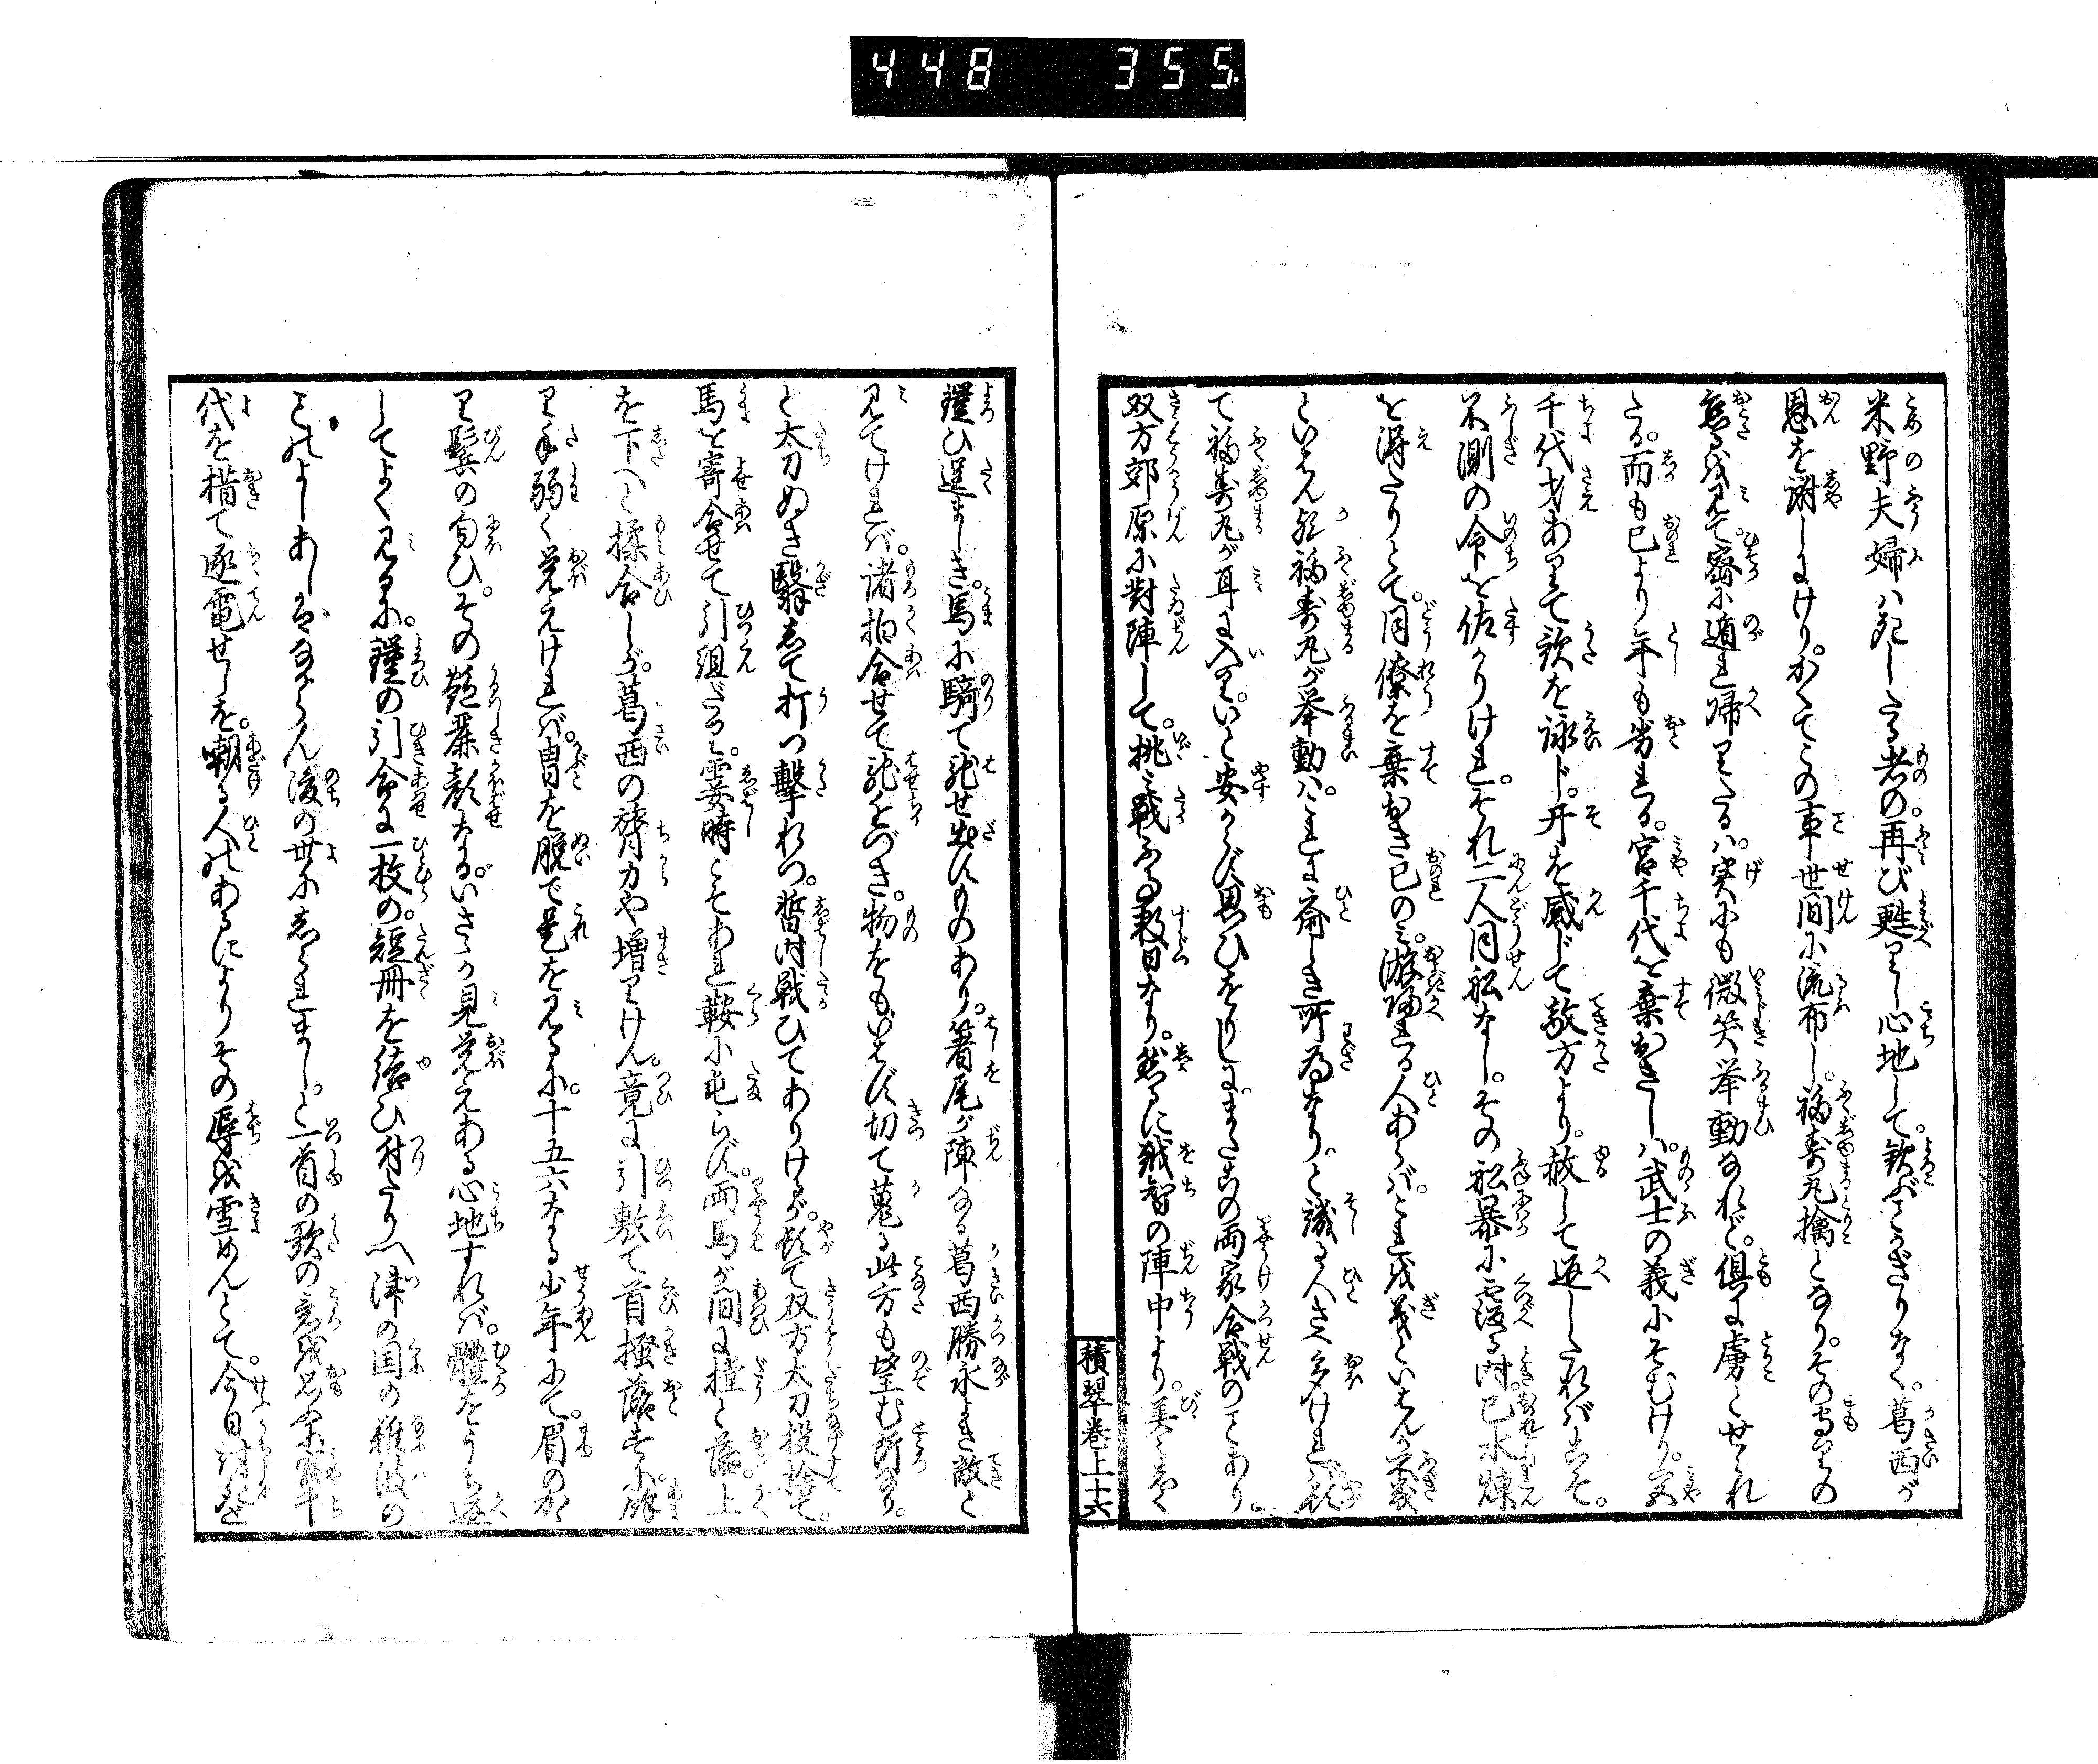 448 355
米野夫婦ハ死したる者の。再び甦りし心地して。歓びかぎりなく。葛西が
恩を謝しにけり。かくてこの事世間に流布し。福寿丸擒となり。その守りの
怠るを見て。密に遁れ帰りたるハ。実にも微笑挙動なれど。倶に虜とせられ
たる。而も已より年も劣れる。宮千代を棄おきしハ。武士の義にそむけり。又宮
千代才ありて歌を詠じ。丹を感じて敵方より。赦して返したればこそ。
不測の命を佐かりけれ。それ二人同船なし。その船暴に覆る時。已水煉
を得たりとて。同僚を棄おき已のミ。游帰れる人あらば。これを義といはんか不義
といはん歟。福寿丸が挙動ハ。これに斎しき所為なり。と譏る人さへ多けれバ。
て福寿丸が耳に入り。いと安からず思ひをりしに。またこの両家合戦のことあり。
双方郊原に対陣して。挑ミ戦ふ事数日なり。然るに越智の陣中より。美々しく
積翠巻上十六
鎧ひ逞ましき。馬に騎て馳せ出すものあり。箸尾が陣なる葛西勝永よき敵と
見てけれバ。諸拍合せて馳ちかづき。物をもいはず切て蒐る此方も望む所なり。
と太刀ぬき翳して打つ撃れつ。暫時戦ひてありけるが。頓て双方太刀投捨て。
馬を寄合せて引組だるに。霎時こそあれ鞍に屯らず。両馬が間に撞と落。上
を下へと揉合しが。葛西の膂力や増りけん。竟に引敷て首掻落すに。餘
りに手弱く覚えけれバ。冑を脱で是を見るに。十五六なる少年にて。眉の形
り鬢の匂ひ。その艶麗顔なる。いさゝか見覚えある心地すれバ。體をうち返
してよく見るに。鎧の引合に一枚の。短冊を結ひ付たり　津の国の難波の
ことのよしあしはながらん後の世にしられまし。と一首の歌の意を思ふに宮千
代を措て逐電せしを。嘲る人のあるによりその辱を雪めんとて。今日討死を